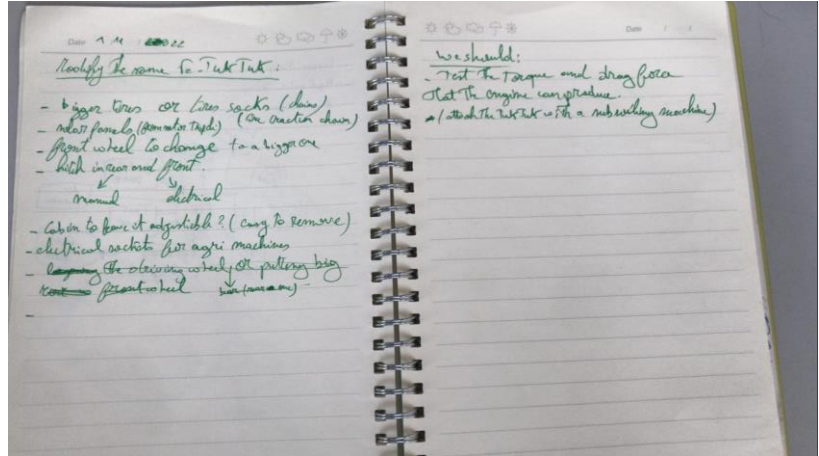 Date 1 11 2022
Modify the name to TukTuk :
- bigger tires or tires socks (chains)
(or traction chains)
- solar panels
- front wheel to change to a bigger one
- hitch in rear and front.
manual electrical
- Cabin to leave it adjustible? (easy to remove)
- electrical sockets for agri machines
- the driving wheel, or putting big
front wheel
-
Date
We should:
- Test the torque and drag force
that the engine can produce.
(attach the TukTuk with a machine)